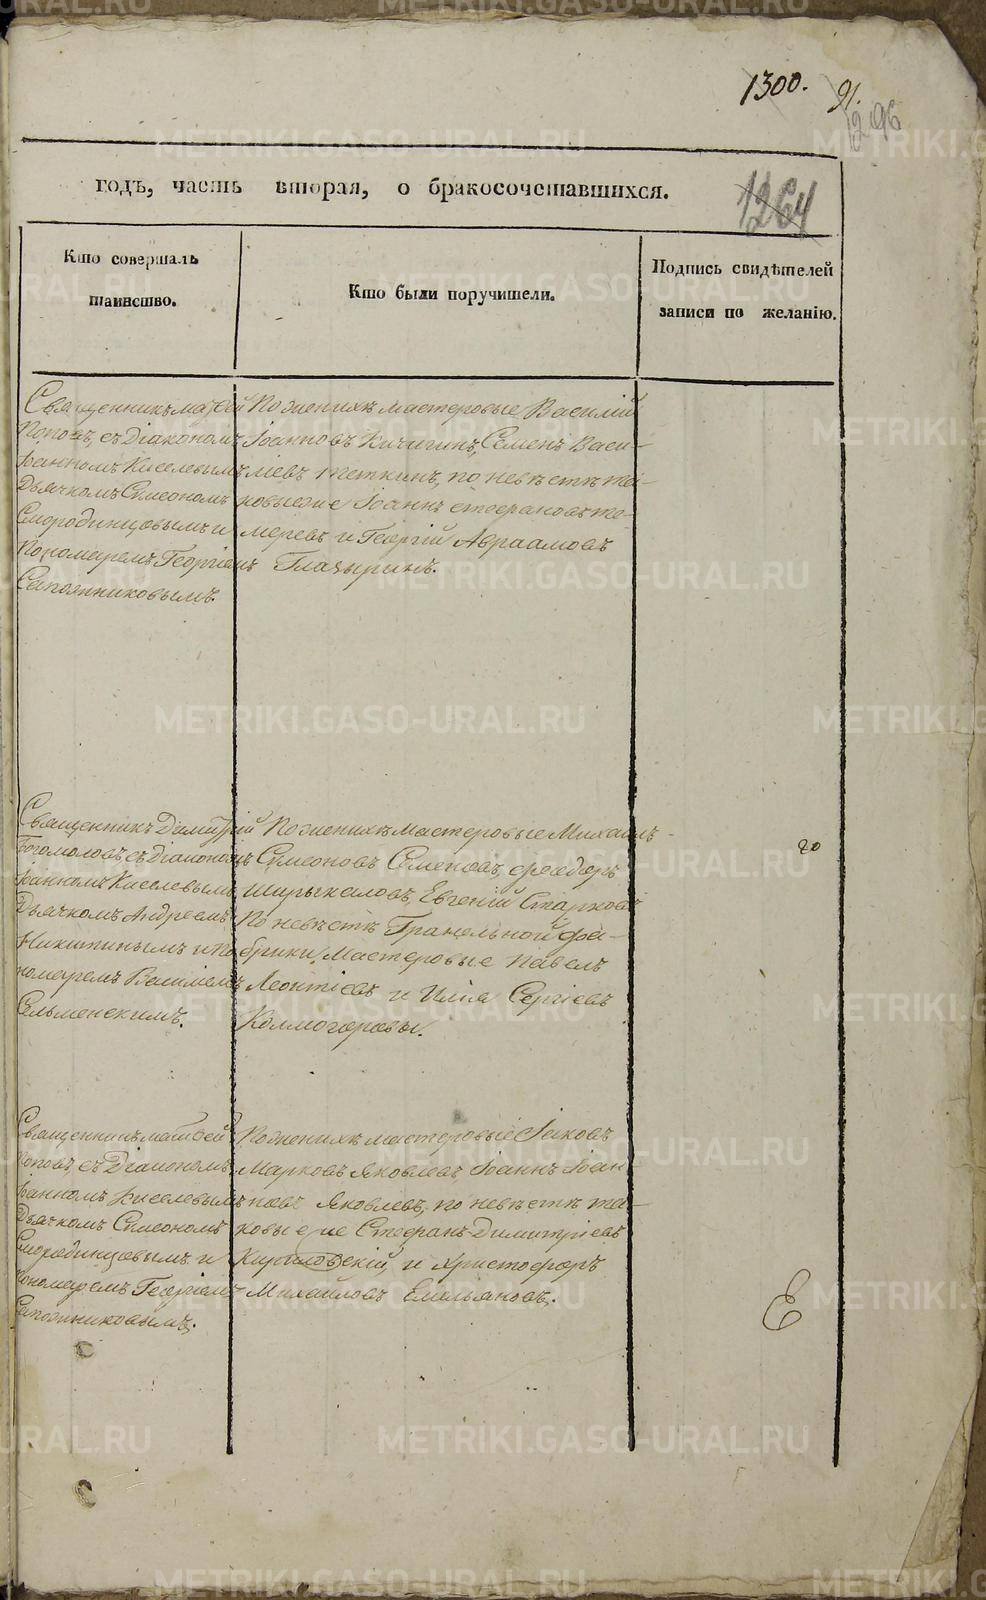 1300.
91.
1296
1264
годъ, часть вторая, о бракосочетавшихся.
Кто совершалъ
таинство.
Кто были поручители.
Подпись свидѣтелей
записи по желанію.
Священникъ Матѳей
Поповъ, съ Діакономъ
Іоанномъ Киселевымъ
Дьячкомъ Симеономъ
Смородинцовымъ и
Пономаремъ Георгіемъ
Сапожниковымъ.
По женихѣ мастеровые Василій
Іоанновъ Кичигинъ, Семенъ Васи-
ліевъ Теткинъ, по невѣстѣ та-
ковыеже Іоаннъ Стефановъ Те-
меревъ и Георгій Авраамовъ
Глазыринъ.
Священникъ Димитрій
Богомоловъ, съ Діакономъ
Іоанномъ Киселевымъ
Дьячкомъ Андреемъ
Никитинымъ и По
номаремъ Василіемъ
Сельменскимъ.
По женихѣ мастеровые Михаилъ
Симеоновъ Семеновъ, Феодоръ
Ширыкаловъ, Евгеній Старковъ
По невѣстѣ Гранильной фа-
брики Мастеровые Павелъ
Леонтіевъ и Илія Сергіевъ
Колмогоровы.
20
Священникъ Матѳей
Поповъ, съ Діакономъ
Іоанномъ Киселевымъ
Дьячкомъ Симеономъ
Смородинцовымъ и
Пономаремъ Георгіемъ
Сапожниковымъ.
По женихѣ мастеровые Іаковъ
Марковъ Яковлевъ, Іоаннъ Іоан
новъ Яковлевъ, по невѣстѣ та-
ковые же Стефанъ Димитріевъ
Кирпловскій, и Христофоръ
Михайловъ Емельяновъ.
Е
METRIKI.GASO-URAL.RU